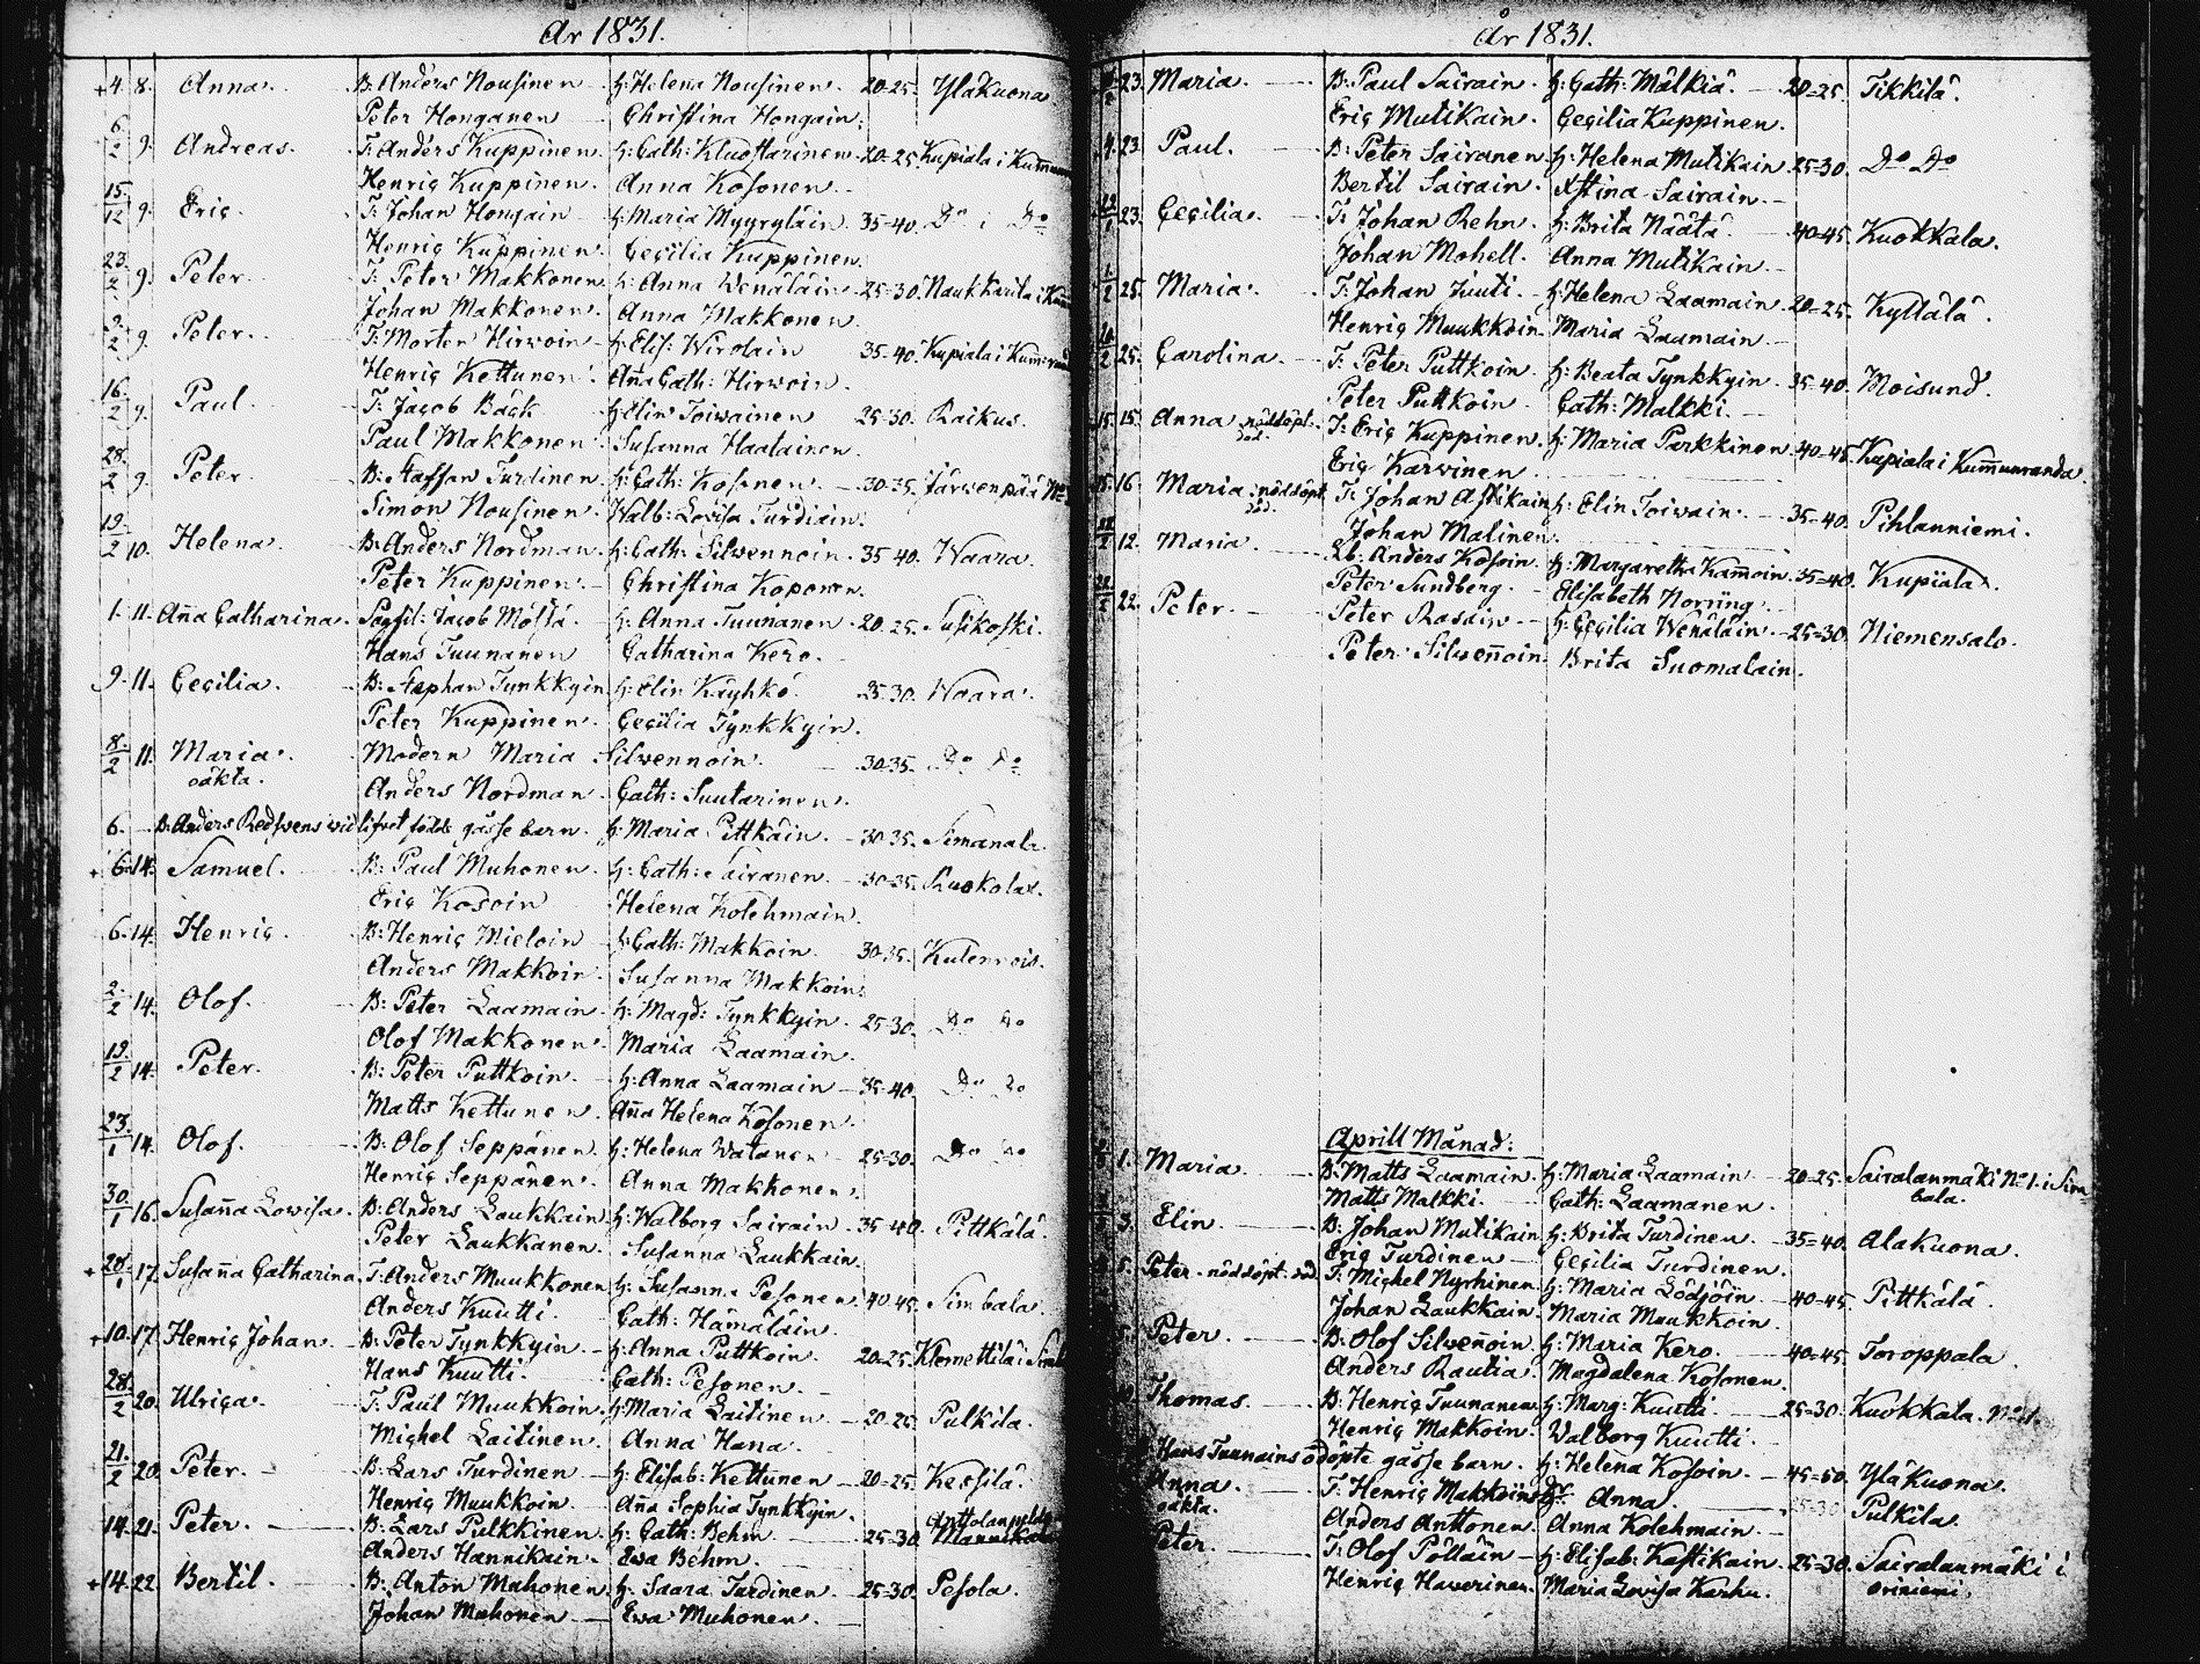 År 1831.
4. 8. Anna. B: Anders Nousinen H: Helena Nousinen. 20-25. Yläkuona
Peter Honganen Christina Hongain.
6/2 9. Andreas. T: Anders Kuppinen. H: Cath: Kluostarinen. 20-25. Kupiala i
Henric Kuppinen. Anna Kosonen.
15/12 9. Eric. T: Johan Hongain H: Maria Myyryläin. 35-40. Do i Do
Henric Kuppinen. Cecilia Kuppinen.
23/2 9. Peter. T: Peter Makkonen H: Anna Wenäläin 25-30. Naukkarila i
Johan Makkonen. Anna Makkonen.
9/2 9. Peter. T: Morten Hirwoin H: Elis: Wirolain 35-40. Kupiala i
Henric Kettunen. Aña Cath: Hirwoin.
16/2 9. Paul. T: Jacob Bäck H: Elin Toiwainen 25-30. Raikus.
Paul Makkonen. Susanna Haatainen.
28/2 9. Peter B: Staffan Turdinen H: Cath: Kosonen. 30-35. Järwenpää
Simon Nousinen. Walb: Lovisa Turdiain.
19/2 10. Helena. B: Anders Nordman. H: Cath: Silwennoin. 35-40. Waara.
Peter Kuppinen. Christina Koponen.
1. 11. Aña Catharina. Jacob Mössä. H: Anna Tuunanen. 20-25. Susikoski.
Hans Tuunanen Catharina Kero.
9. 11. Cecilia. B: Stephan Tynkkyin H: Elin Käyhkö. 25-30. Waara.
Peter Kuppinen. Cecilia Tynkkyin.
8/2 11. Maria. Modern Maria Silwennoin. 30-35. Do Do
oäkta. Anders Nordman. Cath: Suutarinen.
6. B: Anders Redsvens wid lifvet födde gåsse barn. H: Maria Pittkäin. 30-35. Simanala.
6. 14. Samuel. B: Paul Muhonen. H: Cath: Sairanen. 30-35. Ruokolax.
Eric Kosoin Helena Kolehmain.
6. 14. Henric. B: Henric Mieloin H: Cath: Makkoin. 30-35. Kulennois.
Anders Makkoin. Susanna Makkoin.
2/2 14. Olof. B: Peter Laamain H: Magd: Tynkkyin. 25-30. Do Do
Olof Makkonen. Maria Laamain.
19/2 14. Peter. B: Peter Puttkoin. H: Anna Laamain 35-40. Do Do
Matts Kettunen. Aña Helena Kosonen.
23/1 14. Olof. B: Olof Seppänen. H: Helena Watanen 25-30. Do Do
Henric Seppänen. Anna Makkonen.
30/1 16. Susaña Lowisa. B: Anders Laukkain H: Walborg Sairain. 35-40. Pittkälä.
Peter Laukkanen. Susanna Laukkain.
28/1 17. Susaña Catharina. T: Anders Muukkonen H: Susanna Pesonen. 40-45. Simbala.
Anders Kuutti. Cath: Hämäläin.
10. 17. Henric Johan. B: Peter Tynkkyin. H: Anna Puttkoin. 20-25. Klemettilä i
Hans Kuutti. Cath: Pesonen.
28/2 20. Ulrica. T: Paul Muukkoin. H: Maria Laitinen. 20-25. Pulkila.
Michel Laitinen. Anna Hana.
21/2 20. Peter. B: Lars Turdinen H: Elisab: Kettunen 20-25. Kessilä.
Henric Muukkoin Aña Sophia Tynkkyin.
14. 21. Peter. B: Lars Pulkkinen. H: Cath: Behm 25-30.
Anders Hannikain. Ewa Behm.
14. 22. Bertil. B: Anton Muhonen. H: Saara Turdinen. 25-30. Pesola.
Johan Muhonen Ewa Muhonen.
År 1831.
23. Maria. B: Paul Sairain. H: Cath: Mälkiä. 20=25. Tikkilä.
Eric Mutikain. Cecilia Kuppinen.
4. 23. Paul. B: Peter Sairanen H: Helena Mutikain. 25=30. Do Do
Bertil Sairain. Xstina Sairain.
23. Cecilia. T: Johan Rehn. H: Brita Näätä. 40=45. Kuokkala.
Johan Mohell. Anna Mutikain.
1/2 25. Maria. T: Johan Juuti. H: Helena Laamain. 20=25. Kyllälä.
Henric Muukkoin. Maria Laamain
25. Carolina. T: Peter Puttkoin. H: Beata Tynkkyin. 35=40. Moisund.
Peter Puttkoin. Cath: Malkki.
15. 15. Anna nöddöpt. död. T: Eric Kuppinen. H: Maria Parkkinen 40=45. Kupiala i Kum̄unranda.
Eric Karwinen
16. Maria nöddöpt död. T: Johan Astikain H: Elin Toiwain. 35=40. Pihlanniemi.
Johan Malinen.
12. Maria. Anders Kosoin. H: Margaretha Kam̄oin. 35=40. Kupiala.
Peter Sundberg. Elisabeth Norring.
22. Peter. Peter Rasain H: Cecilia Wenäläin. 25=30. Niemensalo.
Peter Silweñoin. Brita Suomalain.
Aprill Månad:
1. Maria. B: Matts Laamain. H: Maria Laamain 20-25. Sairalanmäki No 1. i Sim
bala.
Matts Malkki. Cath: Laamanen.
3. Elin. B: Johan Mutikain H: Brita Turdinen. 35=40. Alakuona.
Eric Turdinen Cecilia Turdinen.
5. Peter nöddöpt död. T: Michel Nyrhinen. H: Maria Lödjöin. 40=45. Pittkälä.
Johan Laukkain. Maria Muukkoin.
5. Peter. B: Olof Silweñoin. H: Maria Kero. 40=45. Toroppala.
Anders Rautia. Magdalena Kosonen.
Thomas. B: Henric Tuunanen. H: Marg: Kuutti. 25=30. Kuokkala.
Henric Makkoin. Walborg Kuutti.
Hans Tuunains odöpte gåsse barn. H: Helena Kosoin. 45=50. Yläkuona.
Anna. T: Henric Makkoins Dr Anna. 25-30 Pulkila.
oäkta. Anders Anttonen. Anna Kolehmain.
Peter. T: Olof Pölläin H: Elisab: Kastikain. 25=30. Sairalanmäki i
Oriniemi.
Henric Hawerinen. Maria Lovisa Karhu.